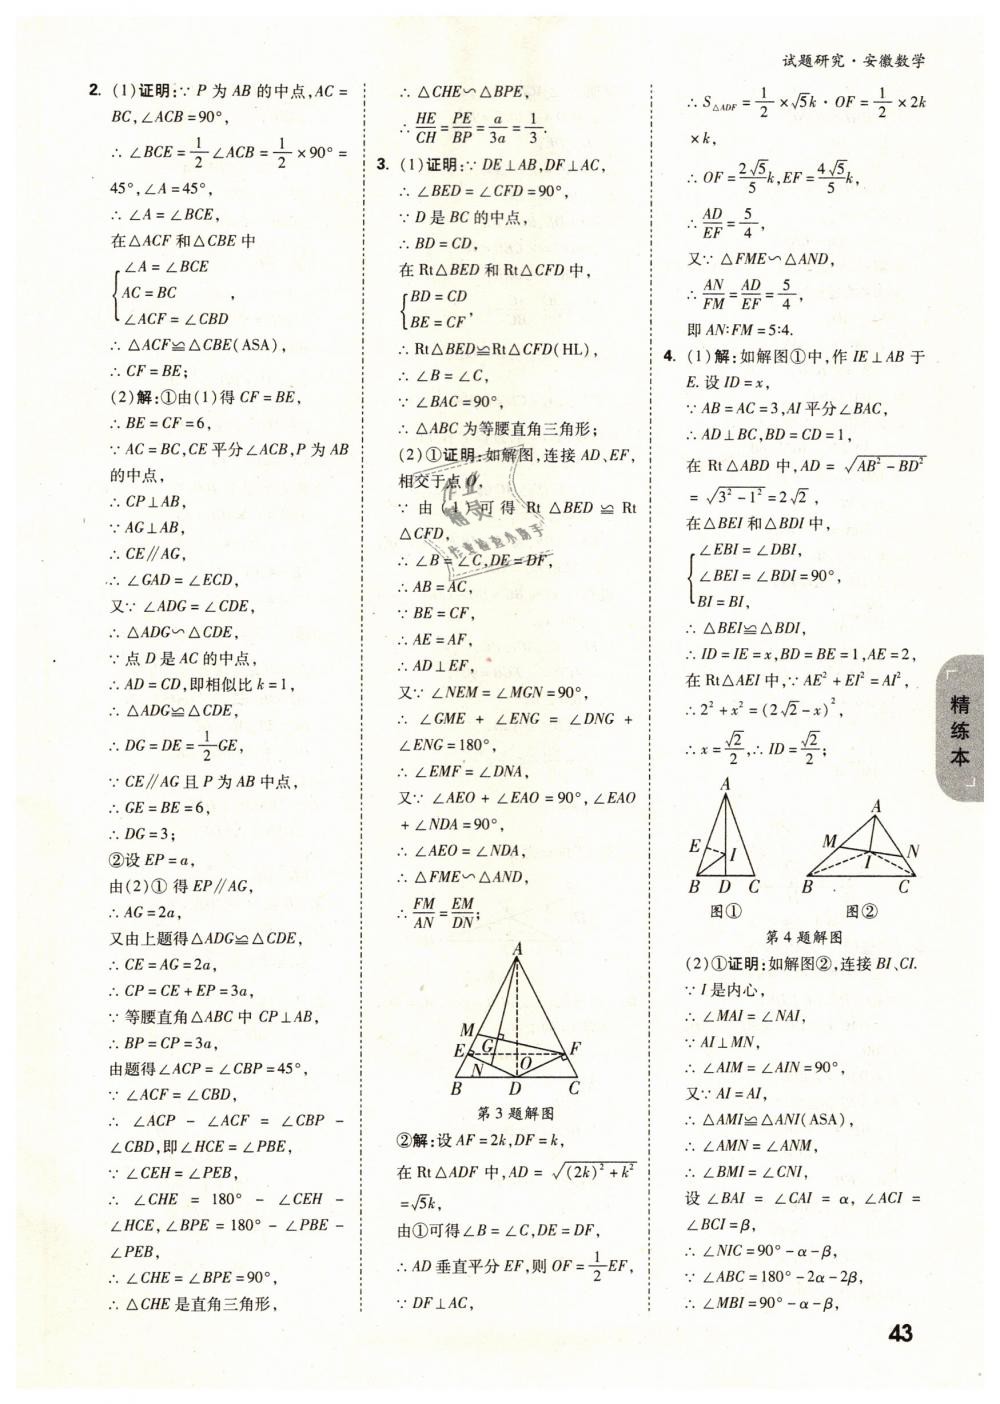 试题研究·安徽数学
2. (1)证明:∵ P 为 AB 的中点,AC =
BC,∠ACB = 90°,
∴ ∠BCE = 1/2 ∠ACB = 1/2 × 90° =
45°,∠A = 45°,
∴ ∠A = ∠BCE,
在△ACF 和△CBE 中
{∠A = ∠BCE
AC = BC ,
∠ACF = ∠CBD
∴ △ACF≌△CBE(ASA),
∴ CF = BE;
(2)解:①由(1)得 CF = BE,
∴ BE = CF = 6,
∵ AC = BC,CE 平分∠ACB,P 为 AB
的中点,
∴ CP⊥AB,
∵ AG⊥AB,
∴ CE∥AG,
∴ ∠GAD = ∠ECD,
又∵ ∠ADG = ∠CDE,
∴ △ADG∽△CDE,
∵ 点 D 是 AC 的中点,
∴ AD = CD,即相似比 k = 1,
∴ △ADG≌△CDE,
∴ DG = DE = 1/2 GE,
∵ CE∥AG 且 P 为 AB 中点,
∴ GE = BE = 6,
∴ DG = 3;
②设 EP = a,
由(2)① 得 EP∥AG,
∴ AG = 2a,
又由上题得△ADG≌△CDE,
∴ CE = AG = 2a,
∴ CP = CE + EP = 3a,
∵ 等腰直角△ABC 中 CP⊥AB,
∴ BP = CP = 3a,
由题得∠ACP = ∠CBP = 45°,
∵ ∠ACF = ∠CBD,
∴ ∠ACP - ∠ACF = ∠CBP -
∠CBD,即∠HCE = ∠PBE,
∵ ∠CEH = ∠PEB,
∴ ∠CHE = 180° - ∠CEH -
∠HCE,∠BPE = 180° - ∠PBE -
∠PEB,
∴ ∠CHE = ∠BPE = 90°,
∴ △CHE 是直角三角形,
∴ △CHE∽△BPE,
∴ HE/CH = PE/BP = a/3a = 1/3.
3. (1)证明:∵ DE⊥AB,DF⊥AC,
∴ ∠BED = ∠CFD = 90°,
∵ D 是 BC 的中点,
∴ BD = CD,
在 Rt△BED 和 Rt△CFD 中,
{BD = CD
BE = CF ,
∴ Rt△BED≌Rt△CFD(HL),
∴ ∠B = ∠C,
∵ ∠BAC = 90°,
∴ △ABC 为等腰直角三角形;
(2)①证明:如解图,连接 AD、EF,
相交于点 O,
∵ 由 (1) 可得 Rt △BED ≌ Rt
△CFD,
∴ ∠B = ∠C,DE = DF,
∴ AB = AC,
∵ BE = CF,
∴ AE = AF,
∴ AD⊥EF,
又∵ ∠NEM = ∠MGN = 90°,
∴ ∠GME + ∠ENG = ∠DNG +
∠ENG = 180°,
∴ ∠EMF = ∠DNA,
又∵ ∠AEO + ∠EAO = 90°,∠EAO
+ ∠NDA = 90°,
∴ ∠AEO = ∠NDA,
∴ △FME∽△AND,
∴ FM/AN = EM/DN;
A
M
E G F
N O
B D C
第 3 题解图
②解:设 AF = 2k,DF = k,
在 Rt△ADF 中,AD = √((2k)² + k²)
= √5k,
由①可得∠B = ∠C,DE = DF,
∴ AD 垂直平分 EF,则 OF = 1/2 EF,
∵ DF⊥AC,
∴ S△ADF = 1/2 × √5k · OF = 1/2 × 2k
× k,
∴ OF = 2√5/5 k,EF = 4√5/5 k,
∴ AD/EF = 5/4,
又∵ △FME∽△AND,
∴ AN/FM = AD/EF = 5/4,
即 AN∶FM = 5∶4.
4. (1)解:如解图①中,作 IE⊥AB 于
E. 设 ID = x,
∵ AB = AC = 3,AI 平分∠BAC,
∴ AD⊥BC,BD = CD = 1,
在 Rt△ABD 中,AD = √(AB² - BD²)
= √(3² - 1²) = 2√2 ,
在△BEI 和△BDI 中,
{∠EBI = ∠DBI,
∠BEI = ∠BDI = 90°,
BI = BI,
∴ △BEI≌△BDI,
∴ ID = IE = x,BD = BE = 1,AE = 2,
在 Rt△AEI 中,∵ AE² + EI² = AI²,
∴ 2² + x² = (2√2 - x)²,
∴ x = √2/2,∴ ID = √2/2;
A
E I
B D C
图①
A
M N
I
B C
图②
第 4 题解图
(2)①证明:如解图②,连接 BI、CI.
∵ I 是内心,
∴ ∠MAI = ∠NAI,
∵ AI⊥MN,
∴ ∠AIM = ∠AIN = 90°,
又∵ AI = AI,
∴ △AMI≌△ANI(ASA),
∴ ∠AMN = ∠ANM,
∴ ∠BMI = ∠CNI,
设 ∠BAI = ∠CAI = α, ∠ACI =
∠BCI = β,
∴ ∠NIC = 90° - α - β,
∵ ∠ABC = 180° - 2α - 2β,
∴ ∠MBI = 90° - α - β,
精练本
43
作业
精灵
作业检查小助手